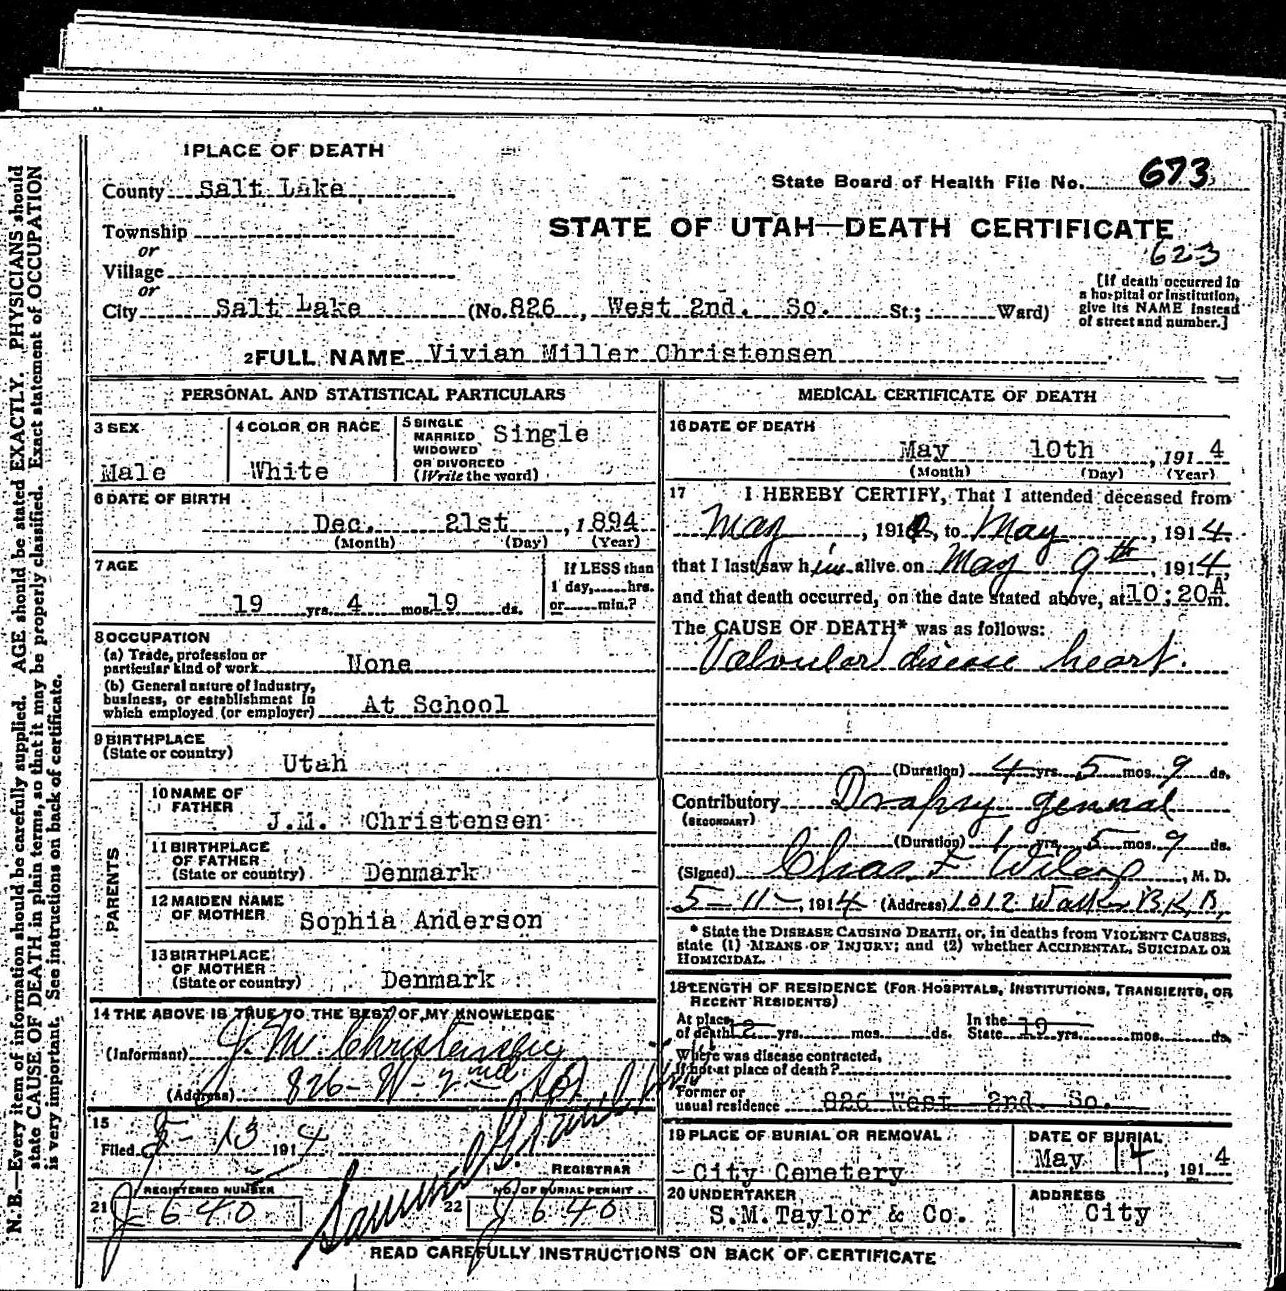 1 PLACE OF DEATH
County Salt Lake
State Board of Health File No. 673
Township
or
STATE OF UTAH—DEATH CERTIFICATE
623
Village
or
City Salt Lake (No. 826, West 2nd. So. St.; Ward)
[If death occurred in
a hospital or institution,
give its NAME instead
of street and number.]
2 FULL NAME Vivian Miller Christensen
PERSONAL AND STATISTICAL PARTICULARS
3 SEX
Male
4 COLOR OR RACE
White
5 SINGLE
MARRIED
WIDOWED
OR DIVORCED
(Write the word)
Single
6 DATE OF BIRTH
Dec. 21st, 1894
(Month) (Day) (Year)
7 AGE
19 yrs. 4 mos. 19 ds.
If LESS than
1 day,......hrs.
or......min.?
8 OCCUPATION
(a) Trade, profession or
particular kind of work None
(b) General nature of industry,
business, or establishment in
which employed (or employer) At School
9 BIRTHPLACE
(State or country)
Utah
PARENTS
10 NAME OF
FATHER
J.M. Christensen
11 BIRTHPLACE
OF FATHER
(State or country) Denmark
12 MAIDEN NAME
OF MOTHER Sophia Anderson
13 BIRTHPLACE
OF MOTHER
(State or country) Denmark
14 THE ABOVE IS TRUE TO THE BEST OF MY KNOWLEDGE
(Informant) J. M. Christensen
(Address) 826- W- 2nd So
15
Filed 5- 13 1914
REGISTRAR
21 REGISTERED NUMBER
J 640
22 NO. OF BURIAL PERMIT
J 640
MEDICAL CERTIFICATE OF DEATH
16 DATE OF DEATH
May 10th, 1914
(Month) (Day) (Year)
17 I HEREBY CERTIFY, That I attended deceased from
May, 191 , to May, 1914,
that I last saw him alive on May 9th, 1914,
and that death occurred, on the date stated above, at 10:20 A m.
The CAUSE OF DEATH* was as follows:
Valvular disease heart.
(Duration) 4 yrs. 5 mos. 9 ds.
Contributory Dropsy general
(SECONDARY)
(Duration) 1 yrs. 5 mos. 9 ds.
(Signed) Chas F Wilcox, M. D.
5-11-, 1914 (Address) 1012 Walker BK, B,
* State the DISEASE CAUSING DEATH, or, in deaths from VIOLENT CAUSES,
state (1) MEANS OF INJURY; and (2) whether ACCIDENTAL, SUICIDAL OR
HOMICIDAL.
18 LENGTH OF RESIDENCE (FOR HOSPITALS, INSTITUTIONS, TRANSIENTS, OR
RECENT RESIDENTS)
At place
of death 12 yrs. mos. ds. In the
State 19 yrs. mos. ds.
Where was disease contracted,
if not at place of death?
Former or
usual residence 826 West 2nd. So.
19 PLACE OF BURIAL OR REMOVAL
City Cemetery
DATE OF BURIAL
May 14, 1914
20 UNDERTAKER
S.M.Taylor & Co.
ADDRESS
City
READ CAREFULLY INSTRUCTIONS ON BACK OF CERTIFICATE
N. B.—Every item of information should be carefully supplied. AGE should be stated EXACTLY. PHYSICIANS should
state CAUSE OF DEATH in plain terms, so that it may be properly classified. Exact statement of OCCUPATION
is very important. See instructions on back of certificate.